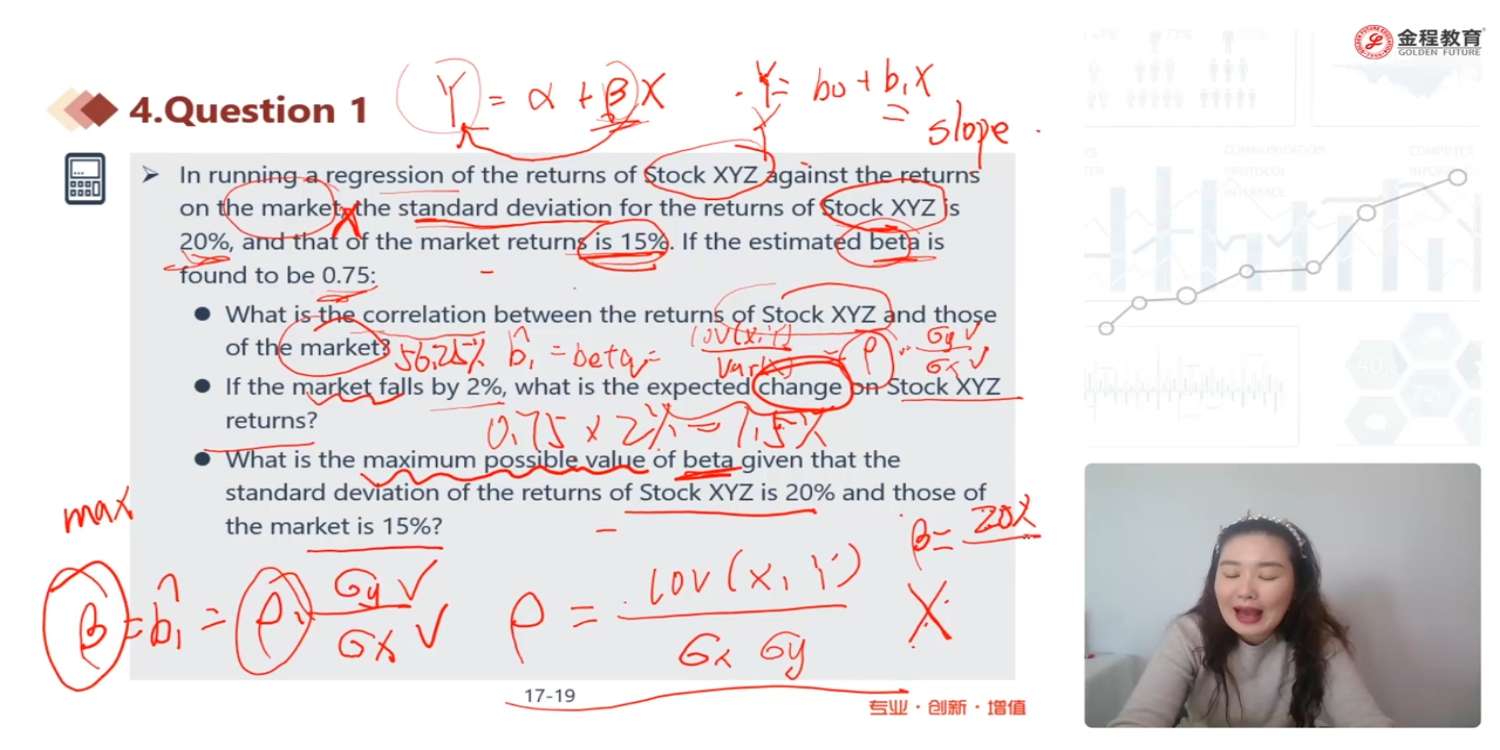 金程教育
GOLDEN FUTURE
4.Question 1
Y = α + βX
Y = b0 + b1X
slope
Y
➢ In running a regression of the returns of Stock XYZ against the returns
on the market, the standard deviation for the returns of Stock XYZ is
X
20%, and that of the market returns is 15%. If the estimated beta is
found to be 0.75:
● What is the correlation between the returns of Stock XYZ and those
of the market?
56.25% b̂1 = beta = cov(x,y) / Var(x) = ρ · σy / σx
● If the market falls by 2%, what is the expected change on Stock XYZ
returns?
0.75 × 2% = 1.5%
● What is the maximum possible value of beta given that the
standard deviation of the returns of Stock XYZ is 20% and those of
the market is 15%?
max
β = 20%
β = b̂1 = ρ · σy / σx
ρ = cov(x, y) / σx σy
17-19
专业·创新·增值